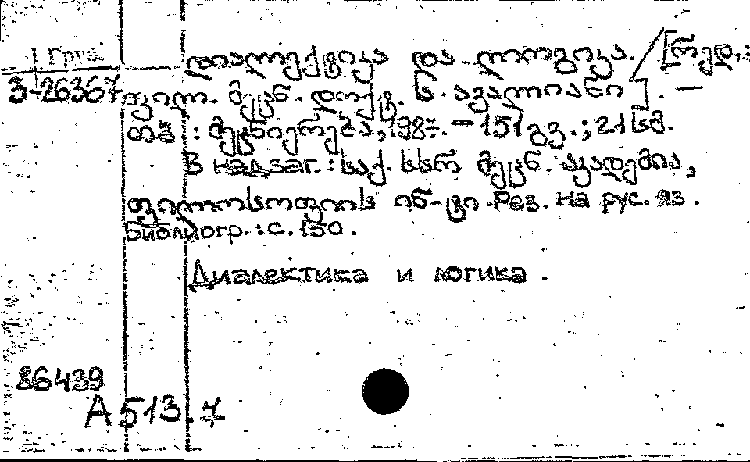 Груз.
З-26367
დიალექტიკა და ლოგიკა. [რედ.:
ფილ. მეცნ. დოქტ. ს. ავალიანი]. —
თბ.: მეცნიერება, 1987. — 151 გვ.; 21 სმ.
В надзаг.: საქ. სსრ მეცნ. აკადემია,
ფილოსოფიის ინ-ტი. Рез. на рус. яз.
Библиогр.: с. 150.
Диалектика и логика.
86439
А 513.7